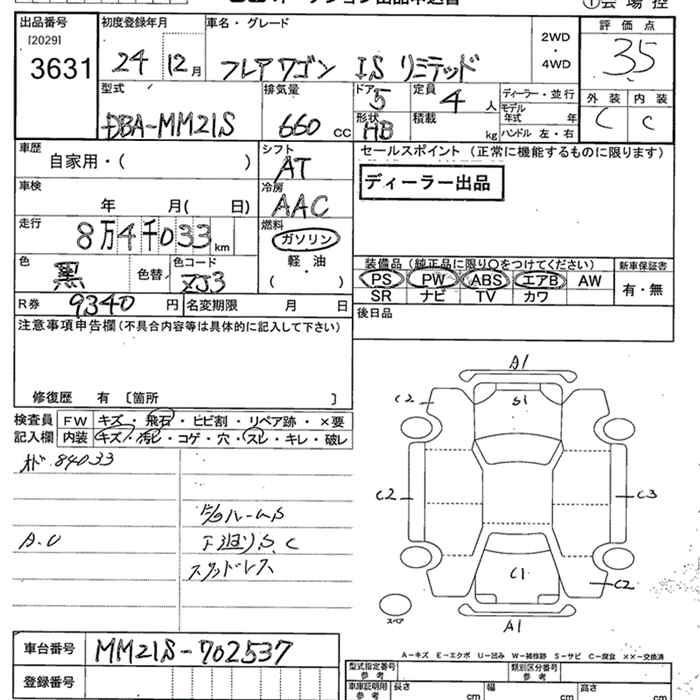 出品番号
[2029]
3631
初度登録年月
24 12月
車名・グレード
フレアワゴン IS リミテッド
2WD
・
4WD
評価点
35
外装 内装
C C
型式
DBA-MM21S
排気量
660 CC
ドア
5
形状
HB
定員
4 人
積載
kg
ディーラー・並行
モデル
年式 年
ハンドル 左・右
車歴
自家用・( )
シフト
AT
車検
年 月( 日)
冷房
AAC
走行
8万4千033km
燃料
ガソリン
軽・油
( )
色
黒
色替
色コード
ZJ3
R券 9340円
名変期限 月 日
セールスポイント(正常に機能するものに限ります)
ディーラー出品
装備品(純正品に限り○をつけてください)
PS PW ABS エアB AW
SR ナビ TV カワ
新車保証書
有・無
後日品
注意事項申告欄(不具合内容等は具体的に記入して下さい)
修復歴 有 〔箇所 〕
検査員
記入欄
FW キズ・飛石・ヒビ割・リペア跡・×要
内装 キズ・汚ヒ・コゲ・穴・スレ・キレ・破レ
84033
ルームS
A.U
下廻りS、C
スタッドレス
A1
C2
S1
C2
C3
C1
C2
A1
スペア
A-キズ E-エクボ U-凹み W-補修跡 S-サビ C-腐食 ××-交換済
車台番号
MM21S-702537
登録番号
型式指定番号
参考
類別区分番号
参考
車庫証明用
参考
長さ cm
幅 cm
高さ cm